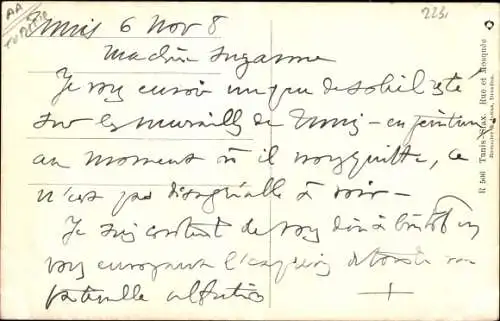 AA
223.
Tunis 6 Nov 8
Ma chère Suzanne
Je vous envoie un peu de soleil resté
sur les murailles de Tunis - en peinture
au moment où il nous quitte, ce
n'est pas désagréable à voir -
Je suis content de vous dire à bientôt en
vous envoyant l'expression de toute ma
R 506 Tunis-Sfax. Rue et Mosquée